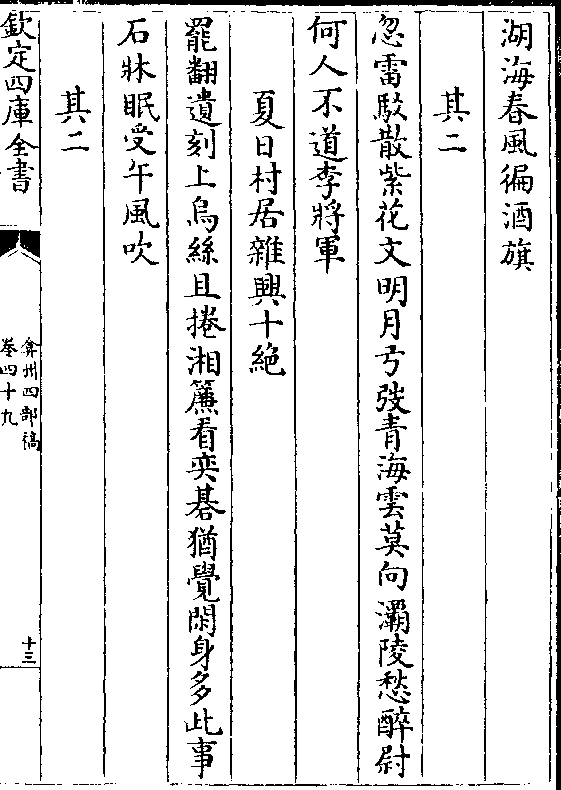 湖海春風徧酒旗
其二
忽雷駮散紫花文明月弓弢青海雲莫向灞陵愁醉尉
何人不道李將軍
夏日村居雜興十絶
罷翻遺刻上烏絲且捲湘簾看奕碁猶覺閑身多此事
石牀眠受午風吹
其二
欽定四庫全書
弇州四部稿
卷四十九
十三